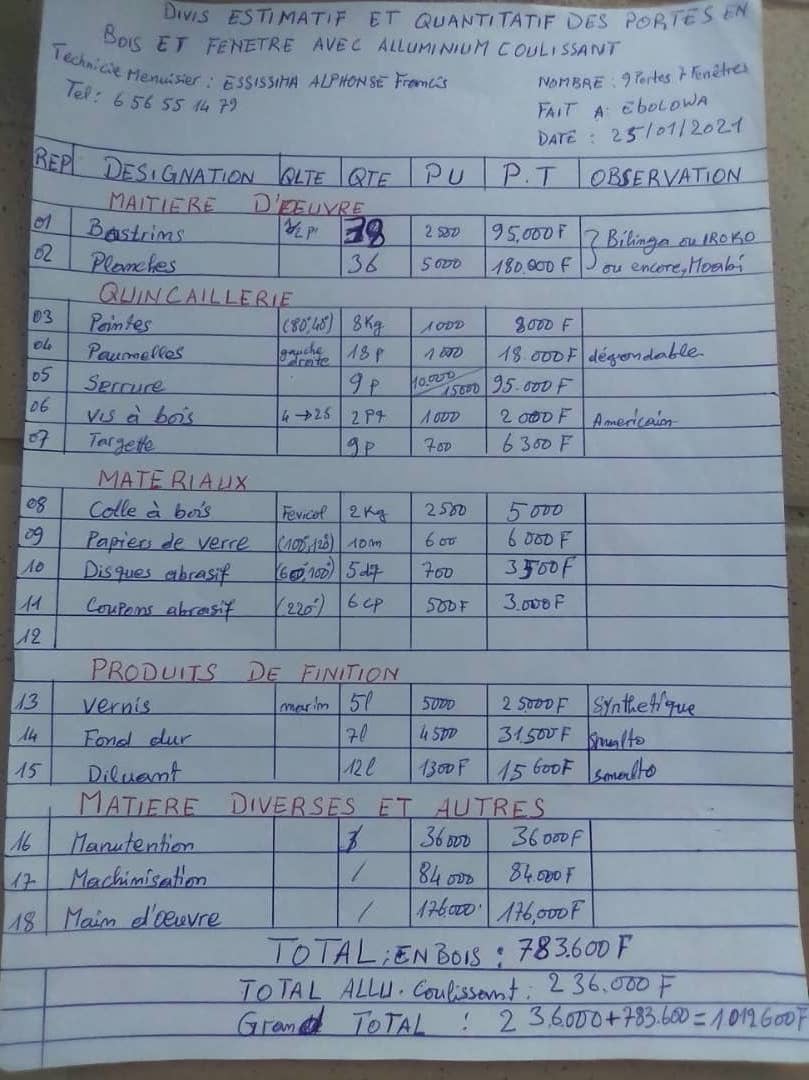 DIVIS ESTIMATIF ET QUANTITATIF DES PORTES EN
BOIS ET FENETRE AVEC ALLUMINIUM COULISSANT
Technicie Menuisier : ESSISSIMA ALPHONSE Francis
NOMBRE : 9 Portes 7 Fenêtres
Tel: 6 56 55 14 79
FAIT A: EBOLOWA
DATE : 25/01/2021
REP DESIGNATION QLTE QTE PU P.T OBSERVATION
MAITIERE D'ŒUVRE
01 Bastrins 2500 95,000F } Bilinga ou IROKO
02 Planches 36 5000 180.000 F ou encore, Moabi
QUINCAILLERIE
03 Pointes (80,40) 8Kg 1000 8000 F
04 Paumelles gauche droite 18p 1000 18.000F dégondable
05 Serrure 9p 10.000/15000 95.000F
06 Vis à bois 4→25 2Pt 1000 2000F Americain
07 Targette 9p 700 6300 F
MATERIAUX
08 Colle à bois Fevicol 2Kg 2500 5000
09 Papiers de verre (100,120) 10m 600 6000F
10 Disques abrasif (60,100) 5df 700 3500F
11 Coupons abrasif (220) 6cp 500F 3.000F
12
PRODUITS DE FINITION
13 Vernis marin 5l 5000 25000F Synthetique
14 Fond dur 7l 4500 31500F Smalto
15 Diluant 12l 1300F 15600F Smalto
MATIERE DIVERSES ET AUTRES
16 Manutention / 36000 36000F
17 Machinisation / 84000 84000F
18 Main d'œuvre / 176,000 176,000F
TOTAL : EN BOIS : 783.600 F
TOTAL ALLU. Coulissant : 236.000 F
Grand TOTAL : 236.000+783.600=1.019600F